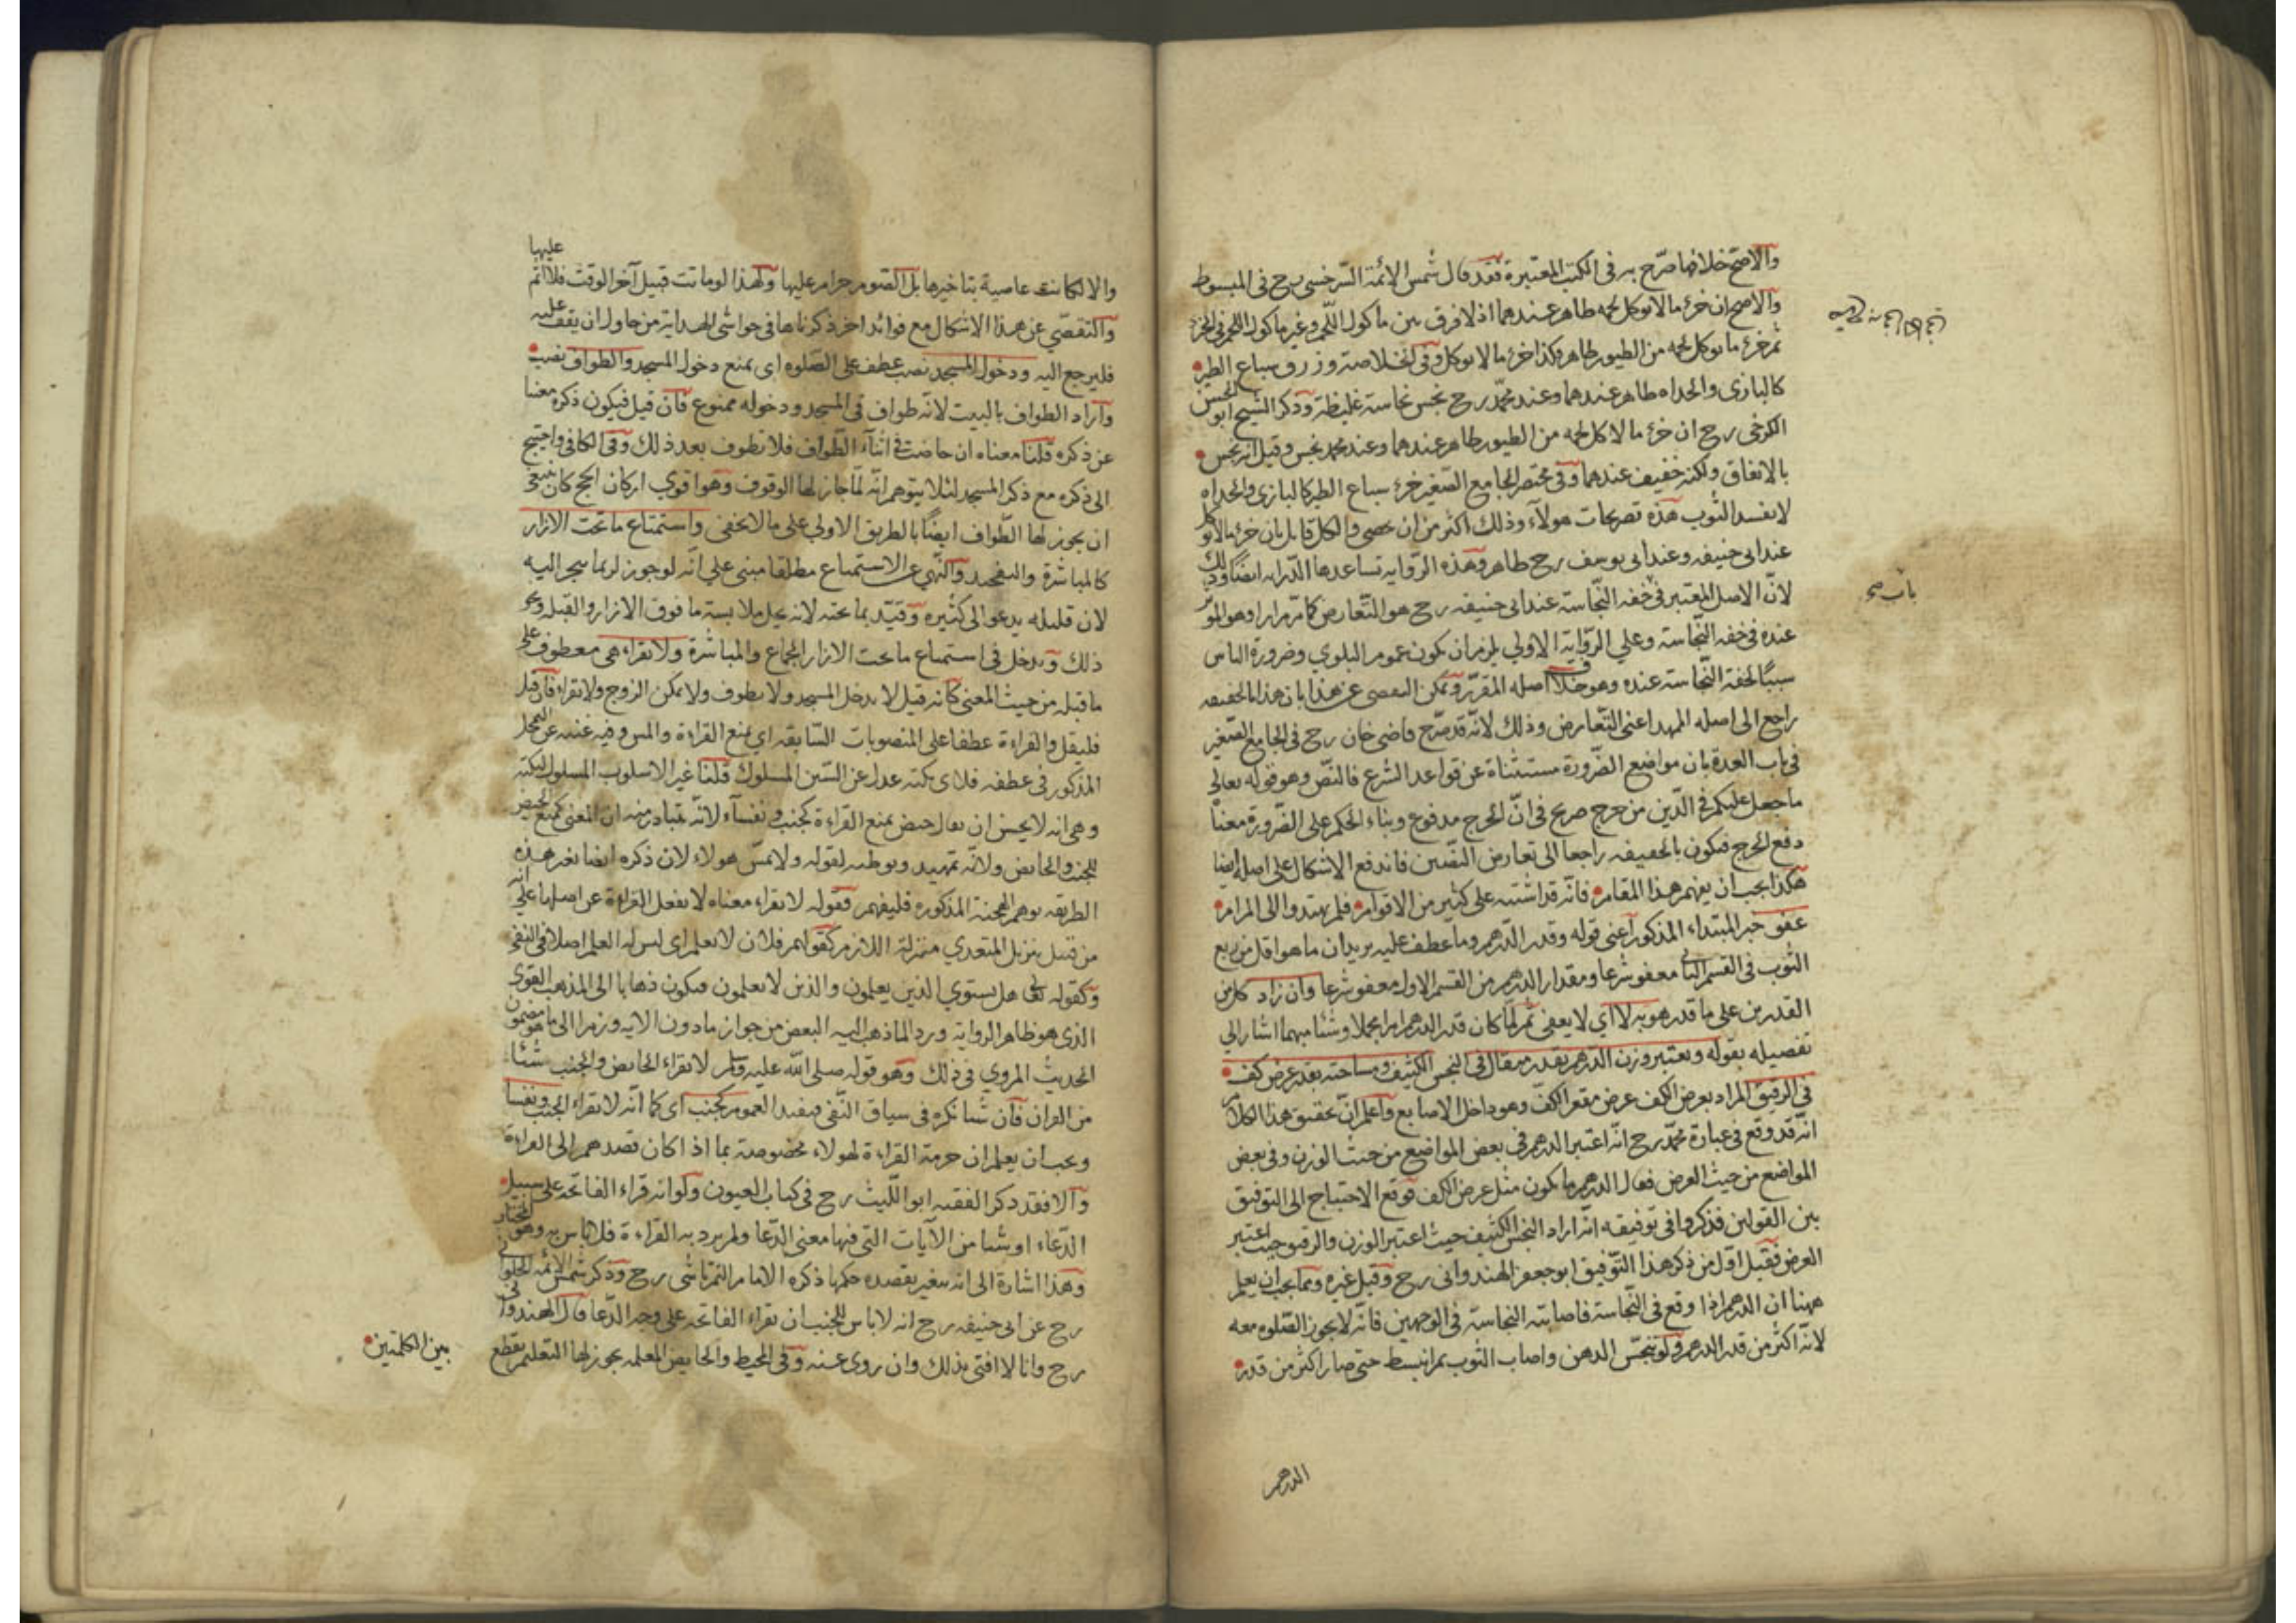 والاصح خلافها صرّح به في الكتب المعتبرة فقد قال شمس الائمة السرخسي رح في المبسوط
والاصح ان خرء ما لا يوكل لحمه طاهر عندهما اذ لا فرق بين ماكول اللحم وغير ماكول اللحم في الخرء
ثم خرء ما يوكل لحمه من الطيور طاهر فكذا خرء ما لا يوكل وفي الخلاصة وزرق سباع الطير
كالبازي والحداه طاهر عندهما وعند محمّد رح نجس نجاسة غليظة وذكر الشيخ ابو الحسن
الكرخي رح ان خرء ما لا كل لحمه من الطيور طاهر عندهما وعند محمد نجس وقيل انه نجس
بالاتفاق ولكنه خفيف عندهما وفي مختصر الجامع الصّغير خرء سباع الطير كالبازي والحداه
لا يفسد الثوب هذه تصريحات هولاء وذلك اكثر من ان يحصى والكل قايل بان خرء ما لا يوكل
عند ابي حنيفه وعند ابي يوسف رح طاهر وهذه الرّوايه تساعدها الدّرايه ايضا وذلك
لانّ الاصل المعتبر في خفه النّجاسة عند ابي حنيفه رح هو التّعارض كما مرّ مرارا وهو الموثر
عنده في خفه النّجاسة وعلي الرّواية الاولي يلزم ان يكون عموم البلوي وضرورة الناس
سببًا لخفة النّجاسة عنده وهو خلاف اصله المقرّر ويمكن التفصي عن هذا بان هذا بالحقيقه
راجع الى اصله الممهد اعني التّعارض وذلك لانّه قد صرّح قاضي خان رح في الجامع الصّغير
في باب العدة بان مواضع الضّرورة مستثناة عن قواعد الشرع فالنصّ وهو قوله تعالى
ما جعل عليكم في الدّين من حرج صريح في انّ الحرج مدفوع وبناء الحكم على الضّرورة معناه
دفع الحرج فيكون بالحقيقه راجعا الى تعارض النصّين فاندفع الاشكال على اصله ايضا
هكذا يجب ان يفهم هذا المقام فانّه قد اشتبه على كثير من الاقوام فلم يهتدوا الى المرام
عفو خبر المبتداء المذكور اعني قوله وقدر الدّرهم وما عطف عليه يريد ان ما هو اقل من ربع
الثوب في القسم الثاني معفو شرعا ومقدار الدرهم من القسم الاول معفو شرعا وان زاد كل من
القدرين على ما قدر هو به لا اي لا يعفى ثم لمّا كان قدر الدرهم امرا مجملا وشئا مبهما اشار الي
تفصيله بقوله ويعتبر وزن الدّرهم بقدر مثقال في النجس الكثيف ومساحته بقدر عرض كف
في الرقيق المراد بعرض الكف عرض مقعر الكفّ وهو داخل الاصابع واعلم انّ تحقيق هذا الكلام
انّه قد وقع في عبارة محمّد رح انّه اعتبر الدرهم في بعض المواضع من حيث الوزن وفي بعض
المواضع من حيث العرض فقال الدرهم ما يكون مثل عرض الكف فوقع الاحتياج الى التوفيق
بين القولين فذكروا في توفيقه انّه اراد النجس الكثيف حيث اعتبر الوزن والرقيق حيث اعتبر
العرض فقيل اوّل من ذكر هذا التّوفيق ابو جعفر الهندواني رح وقيل غيره ومما يجب ان يعلم
ههنا ان الدرهم اذا وقع في النّجاسة فاصابته النجاسة في الوجهين فانّه لا يجوز الصّلوه معه
لانّه اكثر من قدر الدرهم ولو تنجّس الدهن واصاب الثوب ثم انبسط حتى صار اكثر من قدر
الدرهم
عليها
والا لكانت عاصية بتاخيرها بل الصّوم حرام عليها ولهذا لو ماتت قبيل آخر الوقت فلا اثم
والتفصّي عن هذا الاشكال مع فوائد اخر ذكرناها في حواشي الهداية من حاول ان يقف عليه
فليرجع اليه ودخول المسجد نصب عطف على الصّلوه اى يمنع دخول المسجد والطواف نصب
واراد الطواف بالبيت لانّه طواف في المسجد ودخوله ممنوع فان قيل فيكون ذكره مغنيا
عن ذكره قلنا معناه ان حاضت في اثناء الطّواف فلا تطوف بعد ذلك وفي الكافي واحتيج
الى ذكره مع ذكر المسجد لئلا يتوهم انّه لمّا جاز لها الوقوف وهو اقوي اركان الحج كان ينبغي
ان يجوز لها الطّواف ايضًا بالطريق الاولي على ما لا يخفى واستمتاع ما تحت الازار
كالمباشرة والتفخيد والنّهي عن الاستمتاع مطلقا مبنى علي انّه لو جوز لربما يجر اليه
لان قليله يدعو الى كثيره وقيّد بما تحته لانه يحل ملابسته ما فوق الازار والقبله ونحو
ذلك ويدخل في استمتاع ما تحت الازار الجماع والمباشرة ولا تقراء هي معطوف على
ما قبله من حيث المعنى كانه قيل لا يدخل المسجد ولا يطوف ولا يمكن الزوج ولا تقراء فان قيل
فليقل والقراءة عطفا على المنصوبات السّابقه اي يمنع القراءة والمس وفيه غنيه عن التمحل
المذكور في عطفه فلاى نكته عدل عن السّنن المسلوك قلنا غير الاسلوب المسلوك لنكته
وهي انه لا يحسن ان يقال حيض يمنع القراءة كجنب ونفساء لانّه يتبادر منه ان المعنى كمنع الحيض
للجنب والحايض ولانّه تمهيد وتوطئه لقوله ولا يمسّ هولاء لان ذكره ايضا بغير هذه
الطريقه يوهم الهجنة المذكوره فليفهم فقوله لا تقراء معناه لا تفعل القراءة عن اصلها علي انه
من قبيل تنزيل المتعدي منزلة اللازم كقولهم فلان لا يعلم اى ليس له العلم اصلا في النفي
وكقوله تعالى هل يستوي الذين يعلمون والذين لا يعلمون فيكون ذهابا الى المذهب القوي
الذي هو ظاهر الرواية وردا لما ذهب اليه البعض من جواز ما دون الايه ورمزا الى ما هو مضمون
الحديث المروي في ذلك وهو قوله صلى الله عليه وسلم لا تقراء الحايض والجنب شئا
من القران فان شئا نكره في سياق النّفي فيفيد العموم كجنب اى كما انّه لا يقراء الجنب ونفسا
ويجب ان يعلم ان حرمة القراءة لهولاء مخصوصة بما اذا كان قصدهم الى القراءة
والا فقد ذكر الفقيه ابو اللّيث رح في كتاب العيون ولو انه قراء الفاتحه على سبيل
الدّعاء او شئا من الآيات التي فيها معنى الدّعا ولم يرد به القراءة فلا باس به وهو المختار
وهذا اشارة الى انه يتغير بقصده حكمها ذكره الامام التمرتاشي رح وذكر شمس الائمه الحلواني
رح عن ابي حنيفه رح انه لا باس للجنب ان يقراء الفاتحه على وجه الدّعا قال الهندواني
رح وانا لا افتي بذلك وان روي عنه وفي المحيط والحايض المعلمه يجوز لها التعليم بقطع
بين الكلمتين